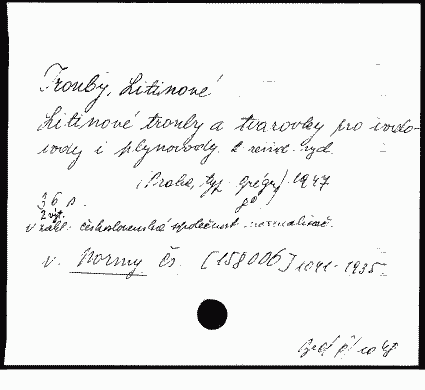 Trouby, Litinové
Litinové trouby a tvarovky pro vodo-
vody i plynovody. 2. revid. vyd.
(Praha, typ. Grégr) 1947
36 s.
2 výt.
v záhl. Československá společnost normalisač.
v. Normy čs. [158006] 1091-1935
10 48